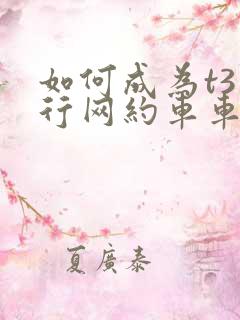 如何成为t3
行网約車車
夏廣泰